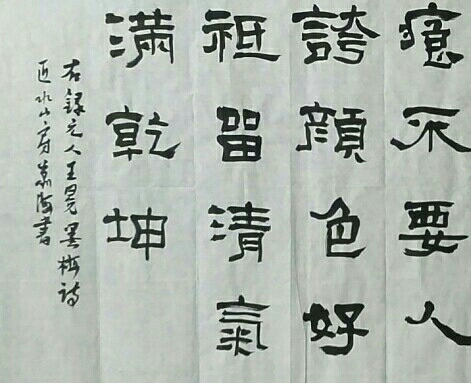 痕不要人
誇顔色好
祗留清氣
滿乾坤
右錄元人王冕墨梅詩
近水山房海書